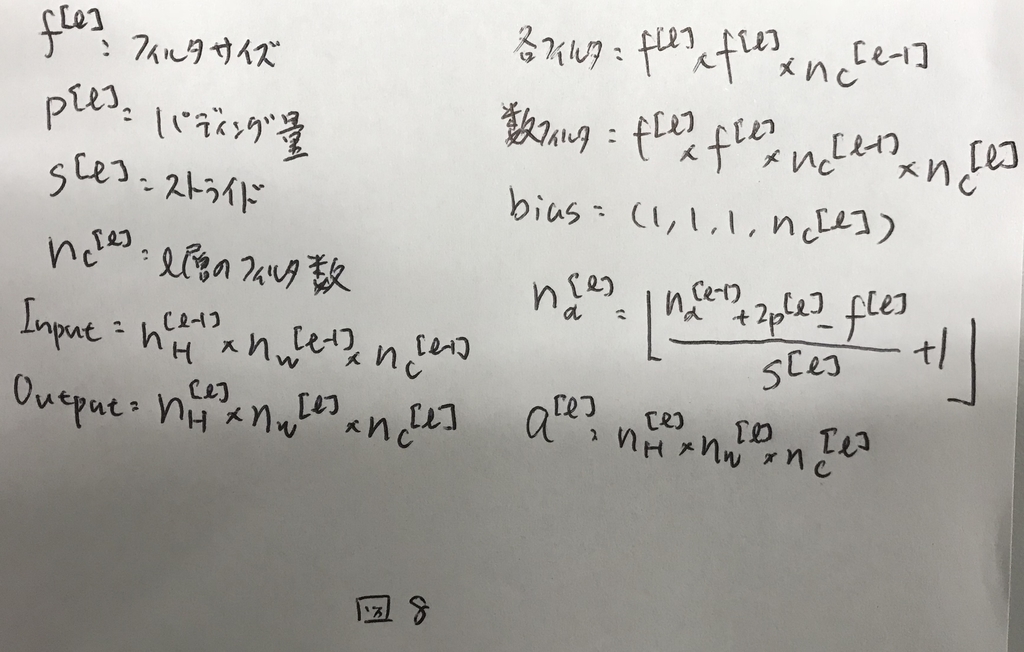 f^[l] : フィルタサイズ
p^[l] = パディング量
s^[l] = ストライド
n_c^[l] = l層のフィルタ数
Input = n_H^[l-1] × n_w^[l-1] × n_c^[l-1]
Output = n_H^[l] × n_w^[l] × n_c^[l]
各フィルタ = f^[l] × f^[l] × n_c^[l-1]
数フィルタ = f^[l] × f^[l] × n_c^[l-1] × n_c^[l]
bias = (1, 1, 1, n_c^[l])
n_a^[l] = ⌊(n_a^[l-1] + 2p^[l] - f^[l]) / s^[l] + 1⌋
a^[l] : n_H^[l] × n_w^[l] × n_c^[l]
図 8